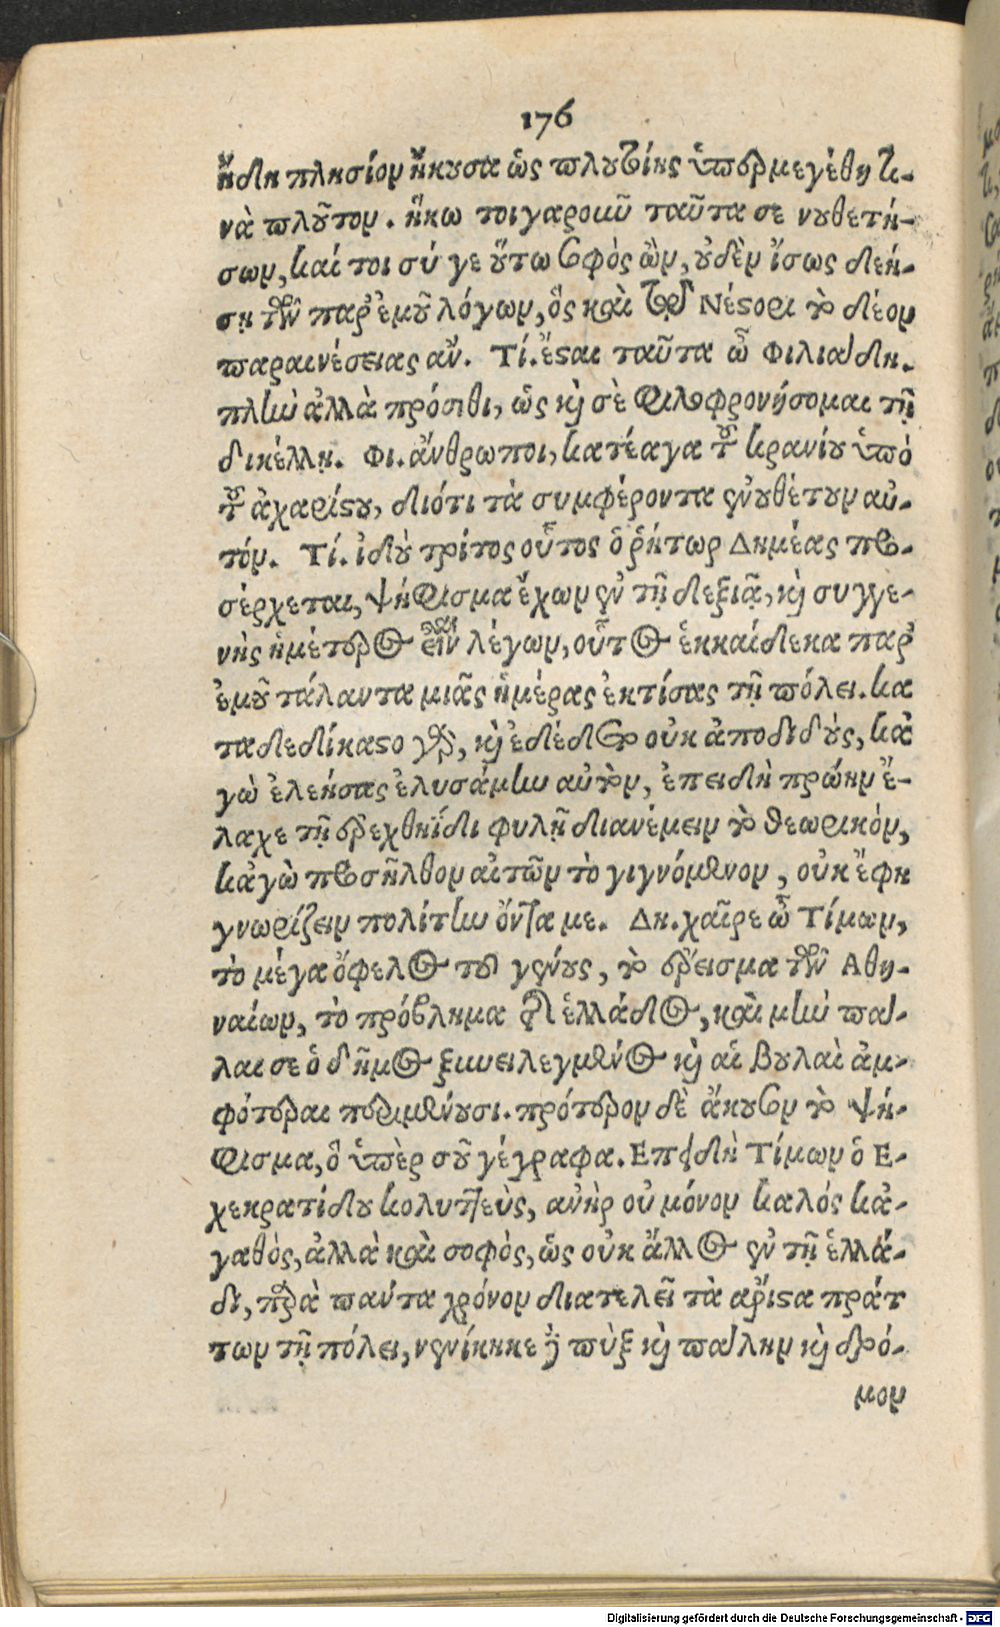 176
ἤδη πλησίον ἤκουσα ὡς πλουτοίης ὑπερμεγέθη τι-
νὰ πλοῦτον. ἥκω τοιγαροῦν ταῦτα σε νουθετή-
σων, καί τοι σύ γε οὕτω σοφὸς ὢν, οὐδὲν ἴσως δεή-
σῃ τῶν παρ' ἐμοῦ λόγων, ὃς καὶ τῷ Νέστορι τὸ δέον
παραινέσειας ἄν. Τί. ἔσται ταῦτα ὦ Φιλιάδη.
πλὴν ἀλλὰ πρόσιθι, ὡς καὶ σὲ φιλοφρονήσομαι τῇ
δικέλλῃ. Φι. ἄνθρωποι, κατέαγα τοῦ κρανίου ὑπὸ
τοῦ ἀχαρίστου, διότι τὰ συμφέροντα ἐνουθέτουν αὐ-
τόν. Τί. ἰδοὺ τρίτος οὗτος ὁ ῥήτωρ Δημέας προ-
σέρχεται, ψήφισμα ἔχων ἐν τῇ δεξιᾷ, καὶ συγγε-
νὴς ἡμέτερος εἶναι λέγων, οὗτος ἑκκαίδεκα παρ'
ἐμοῦ τάλαντα μιᾶς ἡμέρας ἐκτίσας τῇ πόλει. κα
ταδεδίκαστο γὰρ, καὶ ἐδέδετο οὐκ ἀποδιδοὺς, κἀ
γὼ ἐλεήσας ἐλυσάμην αὐτὸν, ἐπειδὴ πρώην ἔ-
λαχε τῇ ἐρεχθηΐδι φυλῇ διανέμειν τὸ θεωρικὸν,
κἀγὼ προσῆλθον αἰτῶν τὸ γιγνόμενον, οὐκ ἔφη
γνωρίζειν πολίτην ὄντα με. Δη. χαῖρε ὦ Τίμων,
τὸ μέγα ὄφελος τοῦ γένους, τὸ ἔρεισμα τῶν Αθη-
ναίων, τὸ πρόβλημα τῆς ἑλλάδος, καὶ μὴν πάλ-
λαι σε ὁ δῆμος ξυνειλεγμένος καὶ αἱ βουλαὶ ἀμ-
φότεραι περιμένουσι. πρότερον δὲ ἄκουσον τὸ ψή-
φισμα, ὃ ὑπὲρ σοῦ γέγραφα. Επειδὴ Τίμων ὁ Ε-
χεκρατίδου κολυττεὺς, ἀνὴρ οὐ μόνον καλὸς κἀ-
γαθὸς, ἀλλὰ καὶ σοφὸς, ὡς οὐκ ἄλλος ἐν τῇ ἑλλά-
δι, παρὰ πάντα χρόνον διατελεῖ τὰ ἄριστα πράτ
των τῇ πόλει, νενίκηκε δὲ πὺξ καὶ πάλην καὶ δρό-
μον
Digitalisierung gefördert durch die Deutsche Forschungsgemeinschaft - DFG